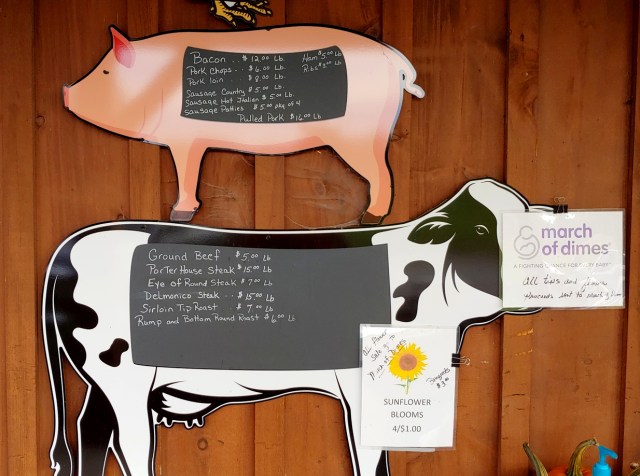 Bacon .. $12.00 Lb.
Ham $5.00 Lb
Pork Chops .. $6.00 Lb.
Pork loin .. $8.00 Lb.
Sausage Country $5.00 Lb.
Sausage Hot Italian $5.00 Lb.
Sausage Patties $5.00 pkg of 4
Pulled Pork $16.00 Lb
Ground Beef .. $5.00 Lb
Porter House Steak $15.00 Lb
Eye of Round Steak $7.00 Lb
Delmonico Steak ... $15.00 Lb
Sirloin Tip Roast $7.00 Lb
Rump and Bottom Round Roast $6.00 Lb
march
of dimes
A FIGHTING CHANCE FOR EVERY BABY
All
sent to
All Flower
Sale $ to
March of Dimes
Bouquets
SUNFLOWER
BLOOMS
4/$1.00